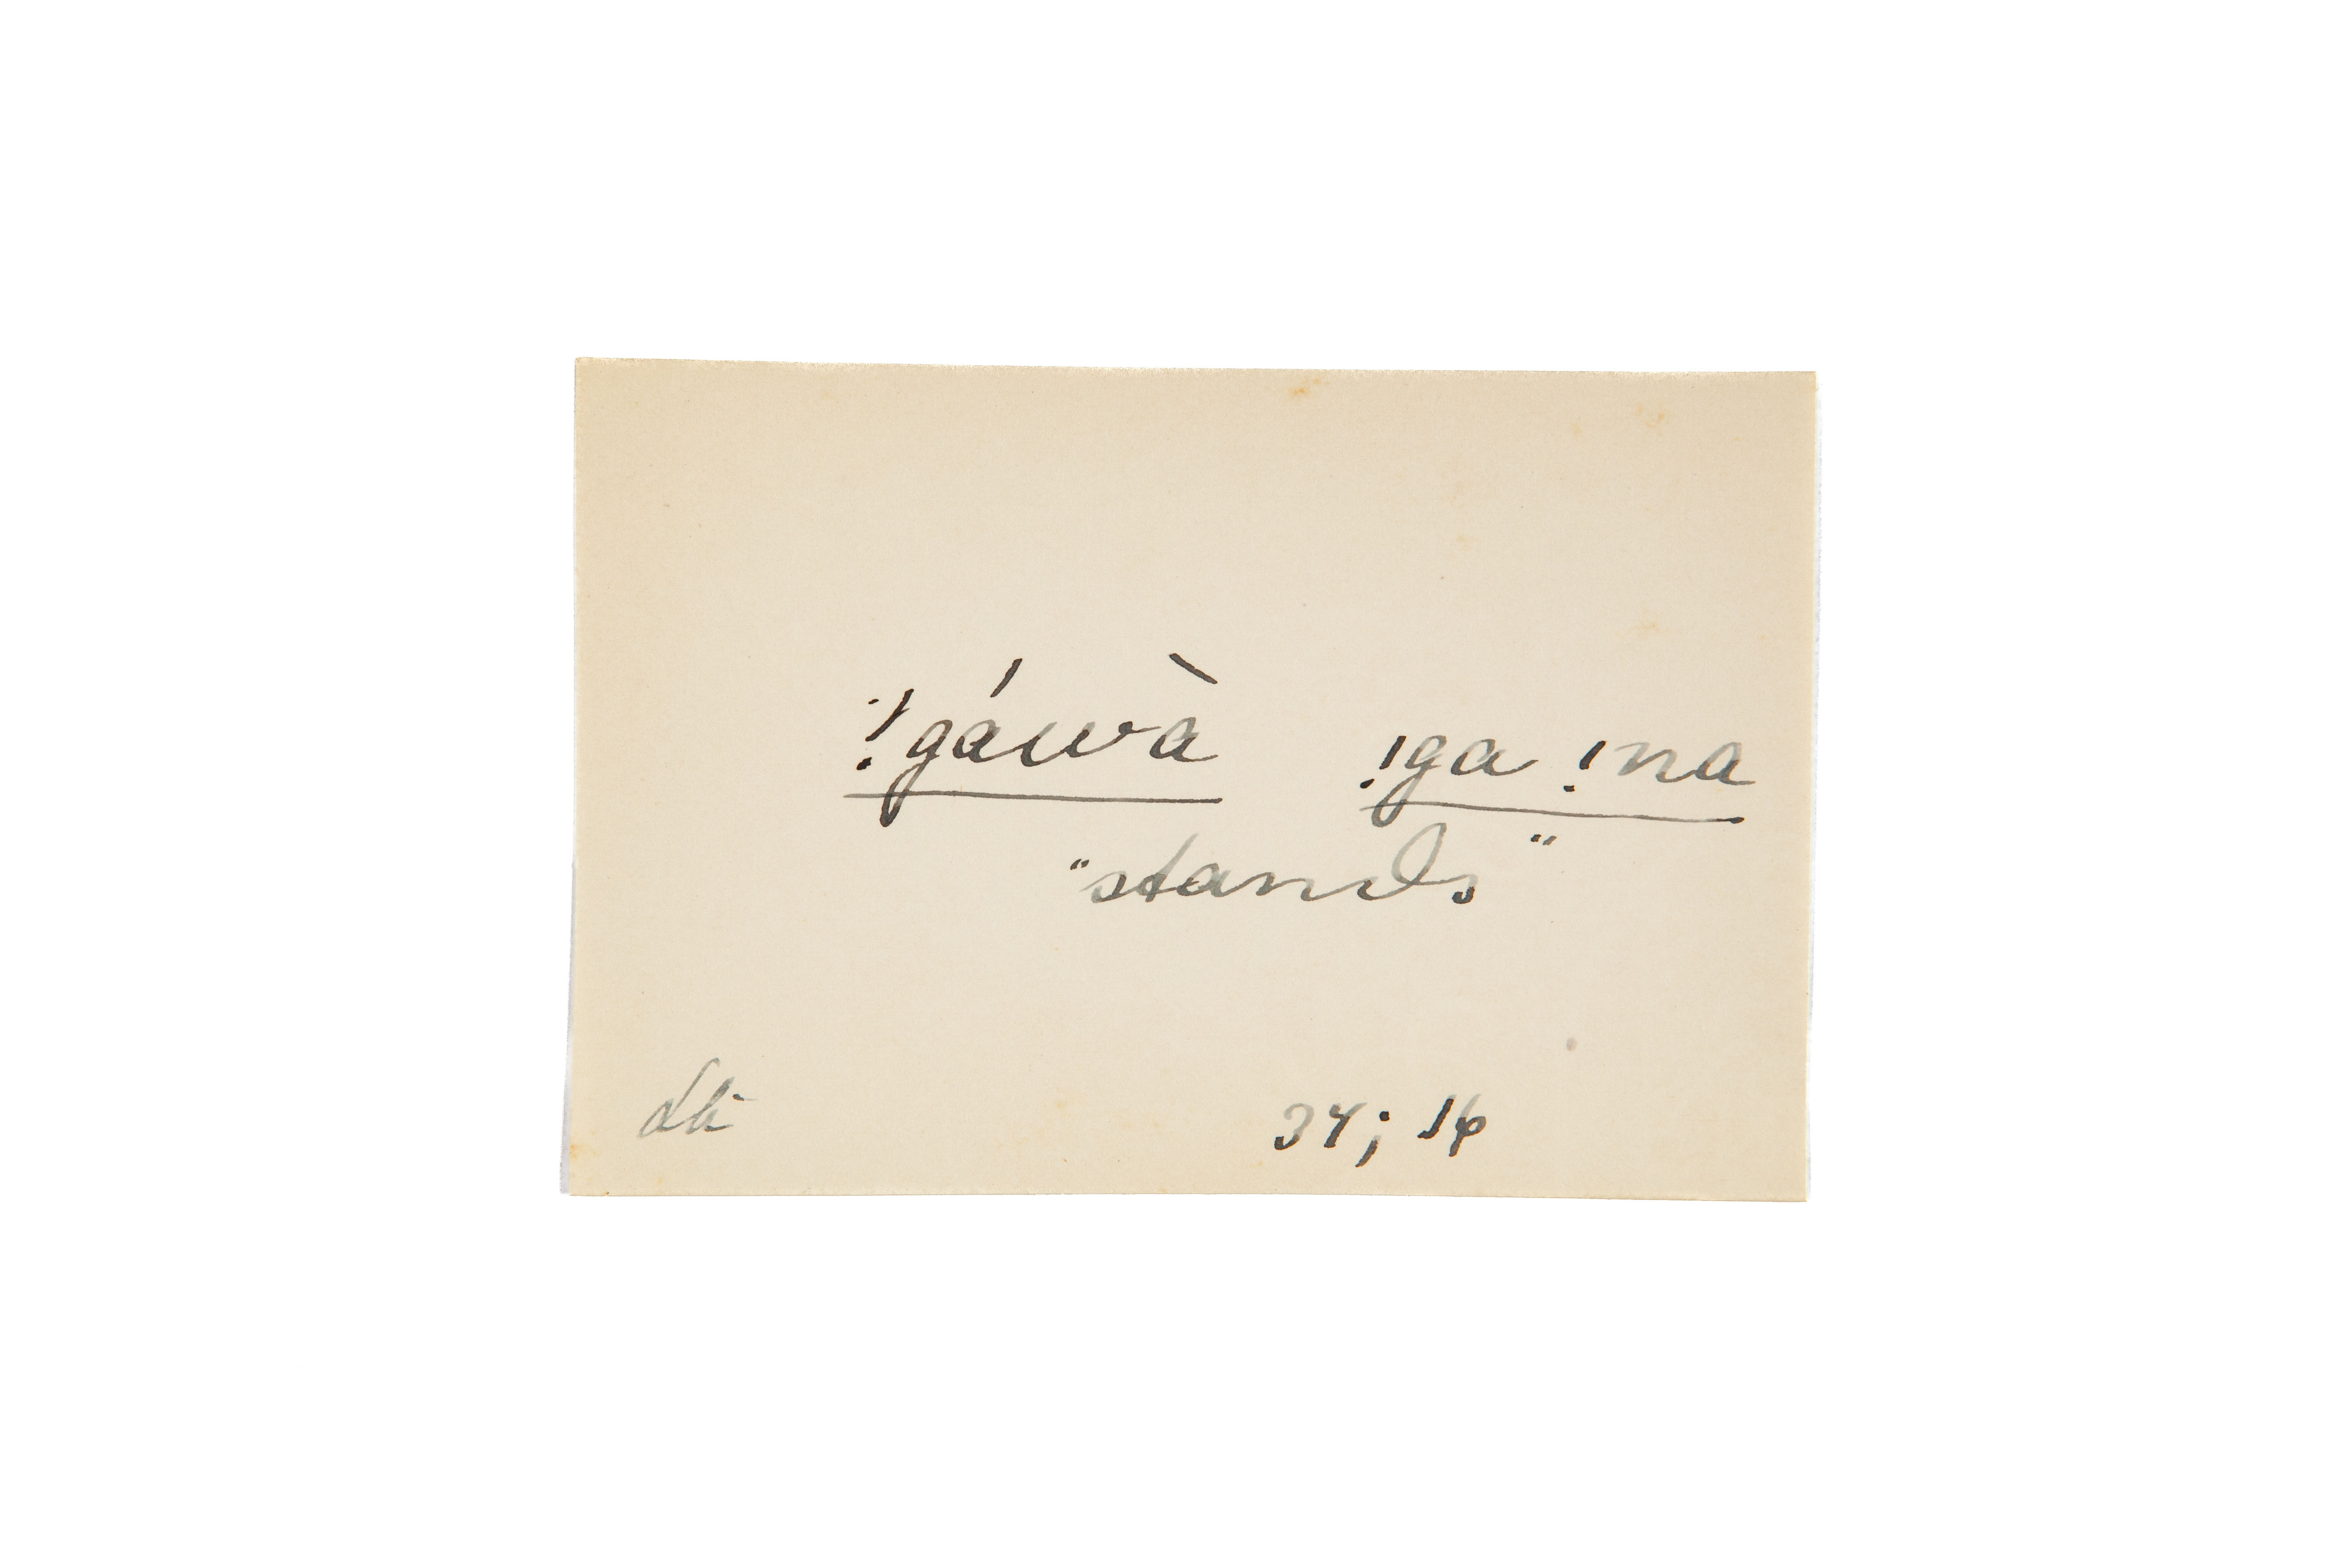 !gáwà !ga !na
"stands"
34; 16